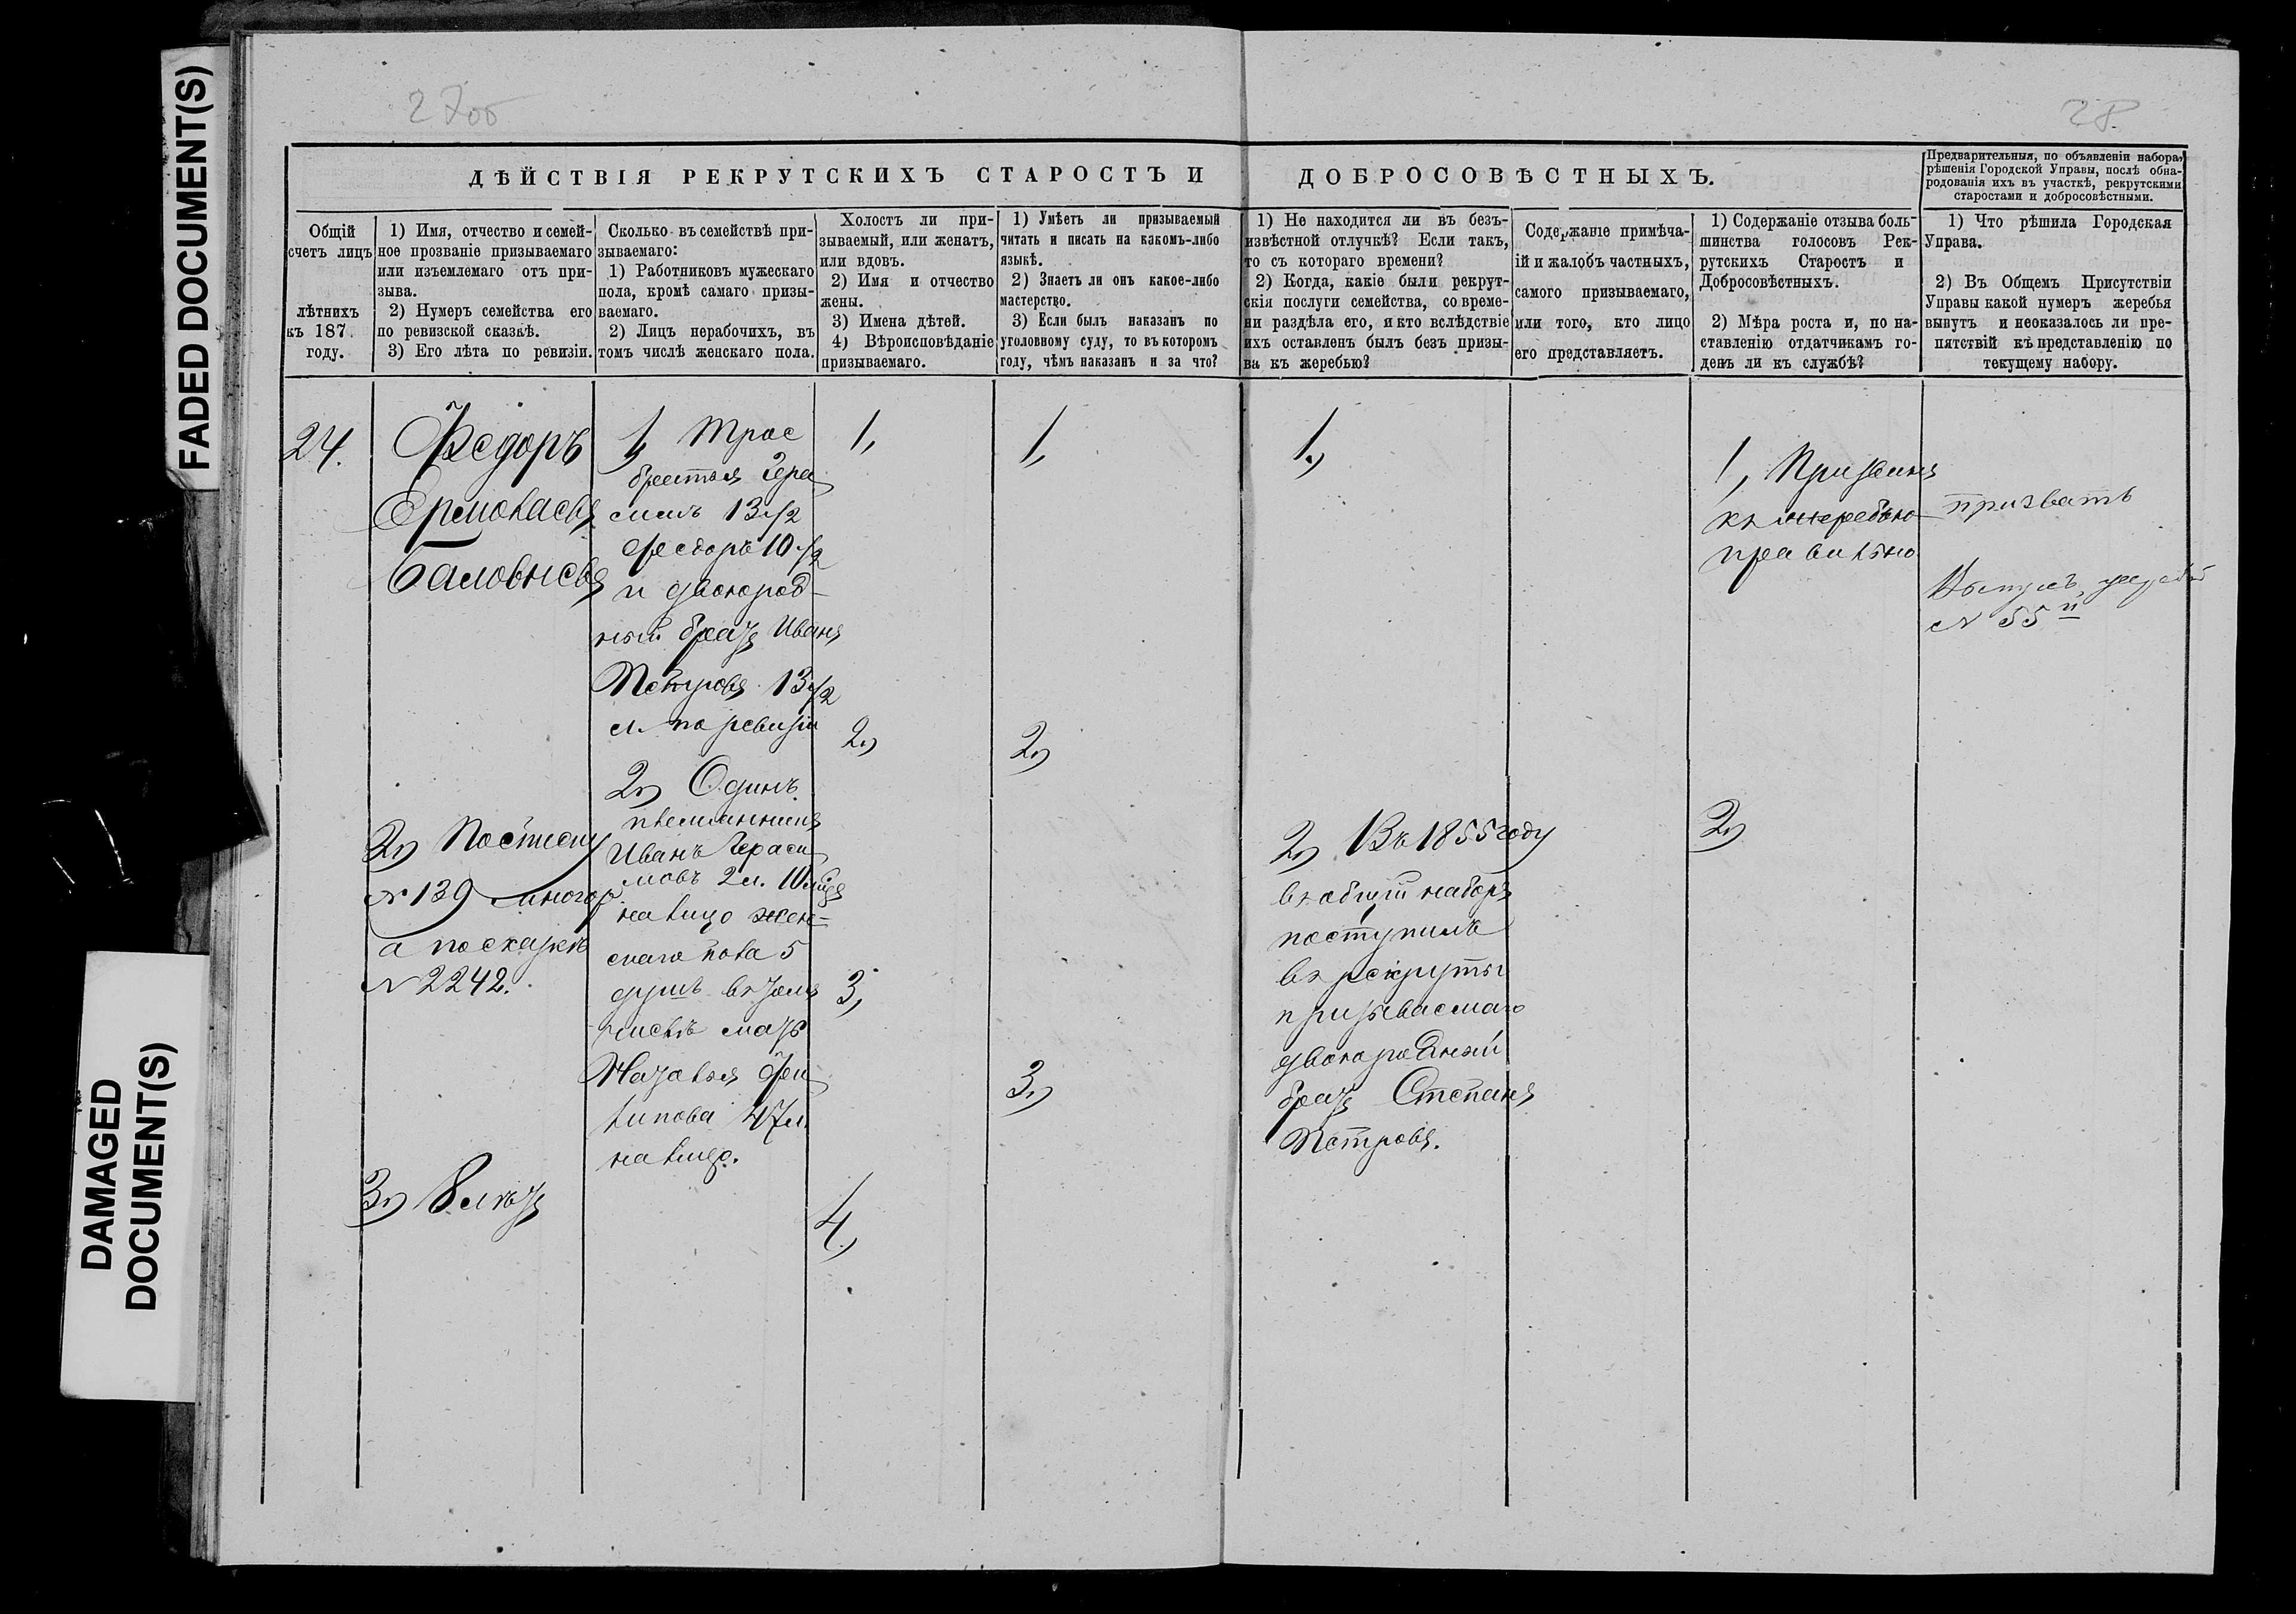 FADED DOCUMENT(S)
DAMAGED
DOCUMENT(S)
2700
28
ДѢЙСТВІЯ РЕКРУТСКИХЪ СТАРОСТЪ И ДОБРОСОВѢСТНЫХЪ.
Предварительныя, по объявленіи набора,
рѣшенія Городской Управы, послѣ обна-
родованія ихъ въ участкѣ, рекрутскими
старостами и добросовѣстными.
Общій
счетъ лицъ
лѣтнихъ
къ 187
году.
1) Имя, отчество и семей-
ное прозваніе призываемаго
или изъемлемаго отъ при-
зыва.
2) Нумеръ семейства его
по ревизской сказкѣ.
3) Его лѣта по ревизіи.
Сколько въ семействѣ при-
зываемаго:
1) Работниковъ мужескаго
пола, кромѣ самаго призы-
ваемаго.
2) Лицъ нерабочихъ, въ
томъ числѣ женскаго пола.
Холостъ ли при-
зываемый, или женатъ,
или вдовъ.
2) Имя и отчество
жены.
3) Имена дѣтей.
4) Вѣроисповѣданіе
призываемаго.
1) Умѣетъ ли призываемый
читать и писать на какомъ-либо
языкѣ.
2) Знаетъ ли онъ какое-либо
мастерство.
3) Если былъ наказанъ по
уголовному суду, то въ которомъ
году, чѣмъ наказанъ и за что?
1) Не находится ли въ безъ-
извѣстной отлучкѣ? Если такъ,
то съ котораго времени?
2) Когда, какіе были рекрут-
скія послуги семейства, со време-
ни раздѣла его, и кто вслѣдствіе
ихъ оставленъ былъ безъ призы-
ва къ жеребью?
Содержаніе примѣча-
ій и жалобъ частныхъ,
самого призываемаго,
или того, кто лицо
его представляетъ.
1) Содержаніе отзыва боль-
шинства голосовъ Рек-
рутскихъ Старостъ и
Добросовѣстныхъ.
2) Мѣра роста и, по на-
ставленію отдатчикамъ го-
денъ ли къ службѣ?
1) Что рѣшила Городская
Управа.
2) Въ Общемъ Присутствіи
Управы какой нумеръ жеребья
вынутъ и неоказалось ли пре-
пятствій къ представленію по
текущему набору.
24.
Федоръ
Ермолаевъ
Баловневъ
2) По списку
№ 139
а по сказкѣ
№ 2242.
3) 8 лѣтъ
1, Трое
братья Гера
симъ 13 1/2
Федоръ 10 1/2
и двоюрод-
ный братъ Иванъ
Петровъ 13 1/2
л. по ревизіи
2) Одинъ
племянникъ
Иванъ Гераси
мовъ 2 л. 10 мѣс
на лицо жен-
скаго пола 5
душъ въ томъ
числѣ мать
Наталья Фи
липова 47 л.
на лицо.
1,
2)
3,
4,)
1,
2)
3)
1.)
2) Въ 1855 году
въ общій наборъ
поступилъ
въ рекруты
призываемаго
двоюродный
братъ Степанъ
Петровъ.
1, Призванъ
къ жеребью
правильно
2)
призвать
Вынутъ жеребій
№ 55й